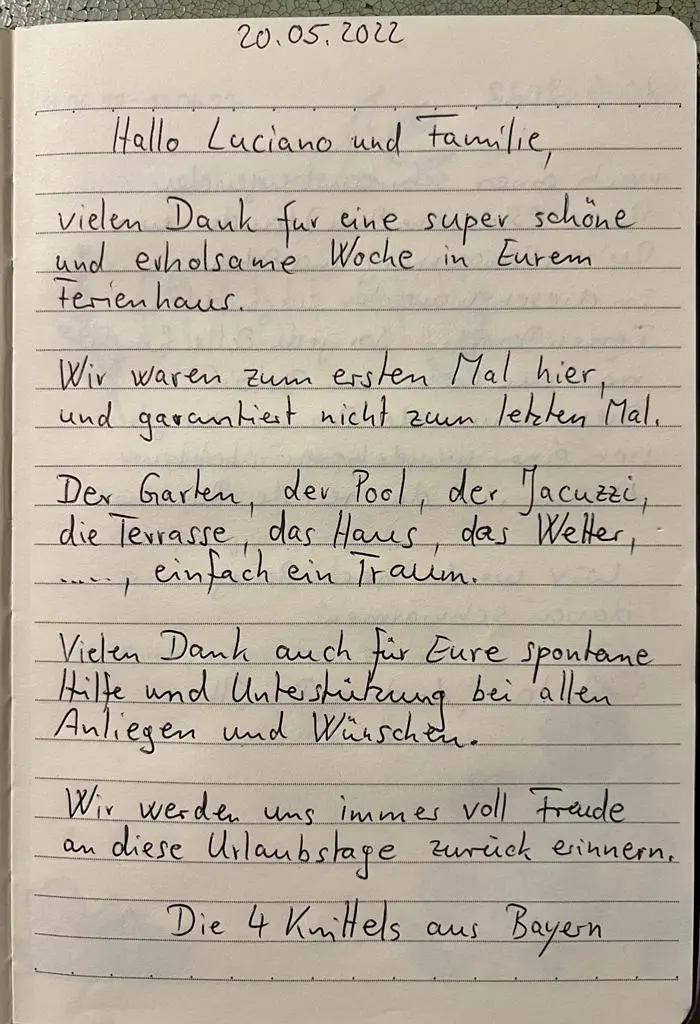 20.05.2022
Hallo Luciano und Familie,
vielen Dank fur eine super schöne
und erholsame Woche in Eurem
Ferienhaus.
Wir waren zum ersten Mal hier,
und garantiert nicht zum letzten Mal.
Der Garten, der Pool, der Jacuzzi,
die Terrasse, das Haus, das Wetter,
....., einfach ein Traum.
Vielen Dank auch für Eure spontane
Hilfe und Unterstützung bei allen
Anliegen und Wünschen.
Wir werden uns immer voll Freude
an diese Urlaubstage zurück erinnern.
Die 4 Knittels aus Bayern